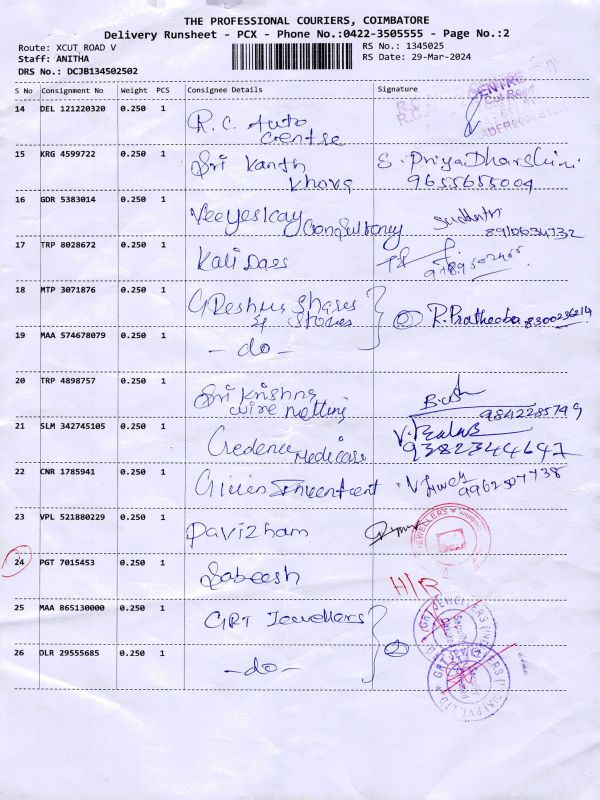 THE PROFESSIONAL COURIERS, COIMBATORE
Delivery Runsheet - PCX - Phone No.:0422-3505555 - Page No.:2
Route: XCUT ROAD V
RS No.: 1345025
Staff: ANITHA
RS Date: 29-Mar-2024
DRS No.: DCJB134502502
S No Consignment No Weight PCS Consignee Details Signature
14 DEL 121220320 0.250 1 R.C. Auto
Centre
15 KRG 4599722 0.250 1 Sri Kanth E. PriyaDharshini
9655655004
16 GDR 5383014 0.250 1 Veeyeskay Consultancy
8910634732
17 TRP 8028672 0.250 1 Kali Dass
9789502455
18 MTP 3071876 0.250 1 Shares
& Stories
② R. Pratheeba 8300236214
19 MAA 574678079 0.250 1 - do -
20 TRP 4898757 0.250 1 Sri Krishna
wire Netting
9842285749
21 SLM 342745105 0.250 1 Credence
Medicare
9382344647
22 CNR 1785941 0.250 1
9962507738
23 VPL 521880229 0.250 1 Pavizham
JEWELLERS
24 PGT 7015453 0.250 1 Sabeesh H/R
25 MAA 865130000 0.250 1 GRT Jewellers
GRT JEWELLERS (INDIA) PVT. LTD
26 DLR 29555685 0.250 1 - do - ②
GRT JEWELLERS (INDIA) PVT. LTD